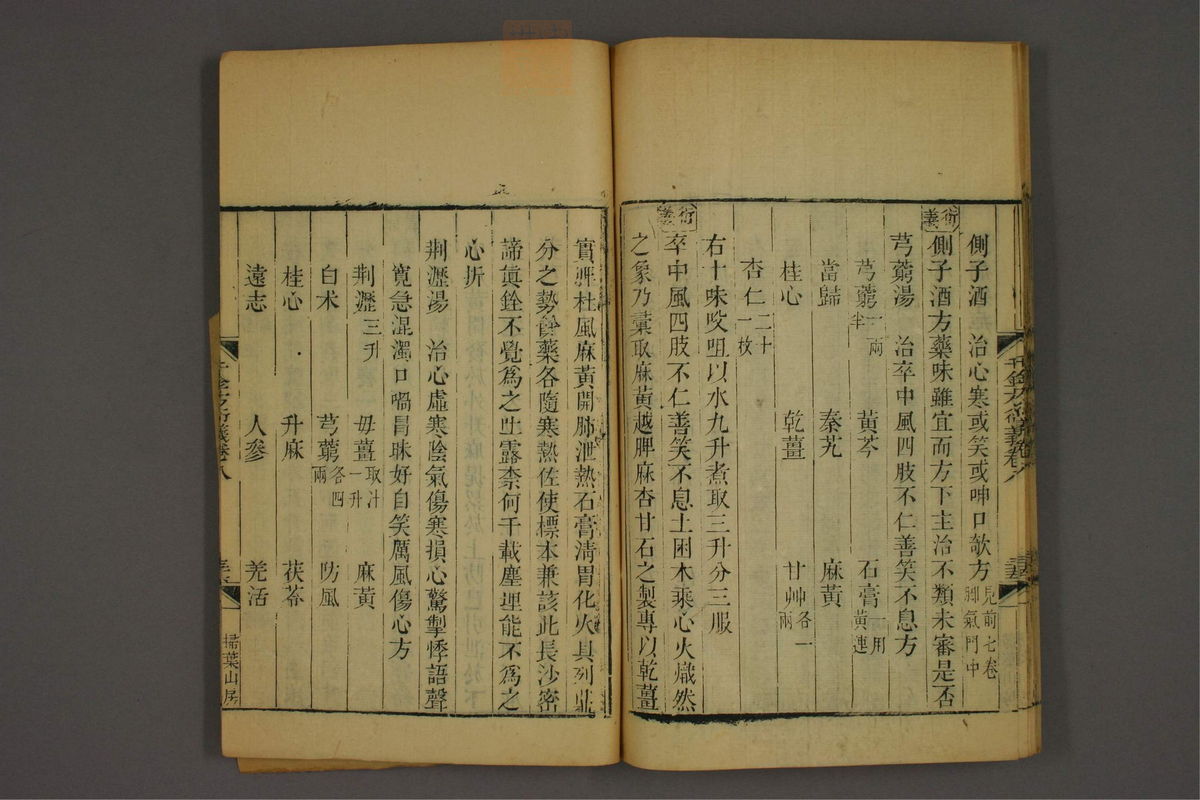 側子酒　治心寒或笑或呻口欹方見前七卷脚氣門中
衍義側子酒方藥味雖宜而方下主治不類未審是否
芎藭湯　治卒中風四肢不仁善笑不息方
芎藭一兩半　黃芩　石膏一用黃連
當歸　秦艽　麻黃
桂心　乾薑　甘艸各一兩
杏仁二十一枚
右十味㕮咀以水九升煮取三升分三服
衍義卒中風四肢不仁善笑不息土困木乘心火熾然
之象乃彙取麻黃越脾麻杏甘石之製專以乾薑
千金方衍義卷八
實脾杜風麻黃開肺泄熱石膏淸胃化火具列鼎
分之勢餘藥各隨寒熱佐使標本兼該此長沙密
諦眞銓不覺爲之吐露柰何千載塵埋能不爲之
心折
荆瀝湯　治心虛寒陰氣傷寒損心驚掣悸語聲
寬急混濁口喎冒昧好自笑厲風傷心方
荆瀝三升　母薑取汁一升　麻黃
白术　芎藭各四兩　防風
桂心　升麻　茯苓
遠志　人參　羌活
千金方衍義卷八
掃葉山房